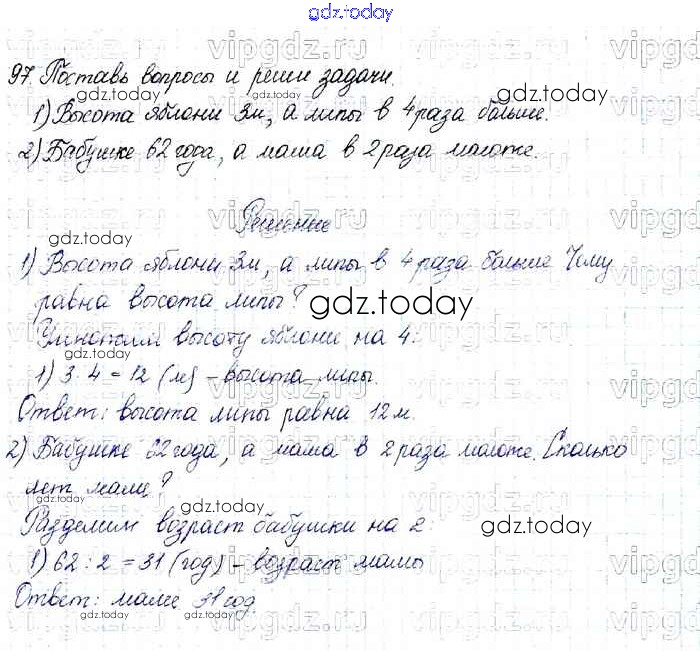 gdz.today
97. Поставь вопросы и реши задачи.
1) Высота яблони 3м, а липы в 4 раза больше.
2) Бабушке 62 года, а мама в 2 раза моложе.
Решение
1) Высота яблони 3м, а липы в 4 раза больше Чему
равна высота липы?
Умножим высоту яблони на 4:
1) 3·4=12 (м) – высота липы.
Ответ: высота липы равна 12м.
2) Бабушке 62 года, а мама в 2 раза моложе. Сколько
лет маме?
Разделим возраст бабушки на 2:
1) 62:2=31 (год) – возраст мамы
Ответ: маме 31 год